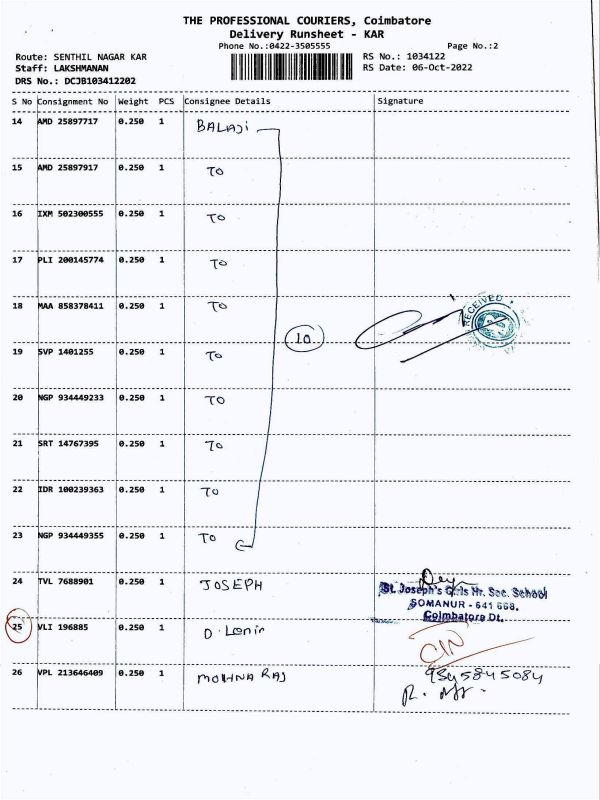 THE PROFESSIONAL COURIERS, Coimbatore
Delivery Runsheet - KAR
Phone No.:0422-3505555 Page No.:2
Route: SENTHIL NAGAR KAR RS No.: 1034122
Staff: LAKSHMANAN RS Date: 06-Oct-2022
DRS No.: DCJB103412202
S No Consignment No Weight PCS Consignee Details Signature
14 AMD 25897717 0.250 1 BALAJi
15 AMD 25897917 0.250 1 TO
16 IXM 502300555 0.250 1 TO
17 PLI 200145774 0.250 1 TO
18 MAA 858378411 0.250 1 TO RECEIVED
10
19 SVP 1401255 0.250 1 TO
20 NGP 934449233 0.250 1 TO
21 SRT 14767395 0.250 1 TO
22 IDR 100239363 0.250 1 TO
23 NGP 934449355 0.250 1 TO
24 TVL 7688901 0.250 1 JOSEPH
St. Joseph's Girls Hr. Sec. School
SOMANUR - 641 668.
Coimbatore Dt.
25 VLI 196885 0.250 1 D. Lenin
CIN
26 VPL 213646409 0.250 1 MOHNA RAJ 9345845084